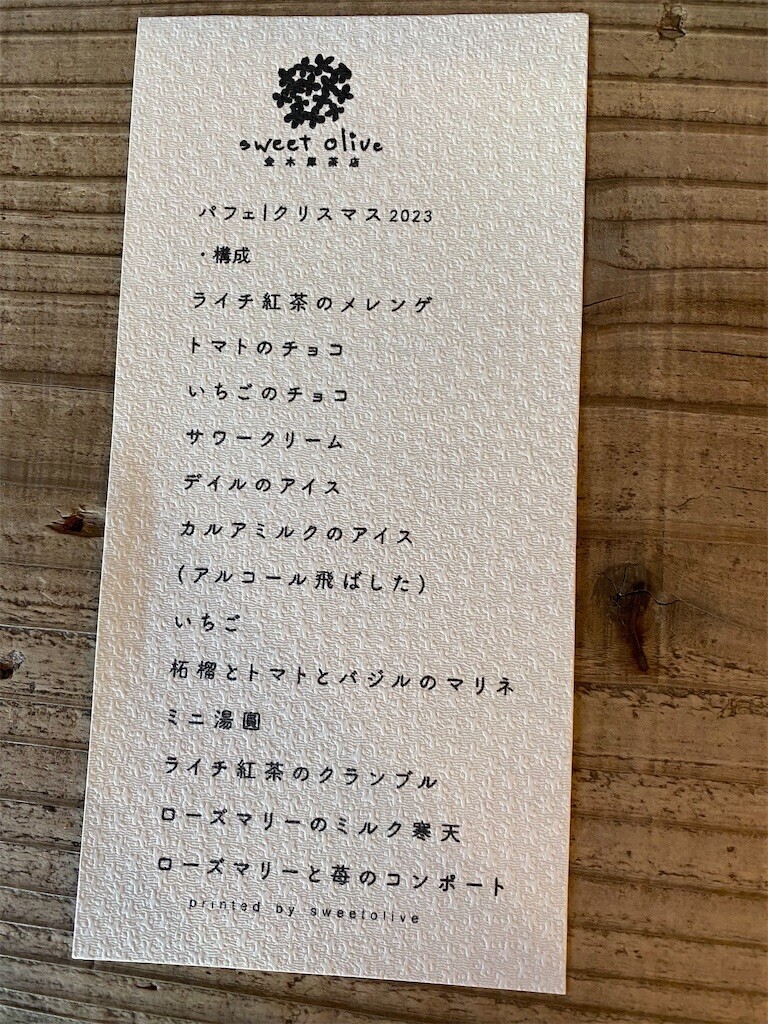 sweet olive
金木犀茶店
パフェ|クリスマス2023
・構成
ライチ紅茶のメレンゲ
トマトのチョコ
いちごのチョコ
サワークリーム
デイルのアイス
カルアミルクのアイス
(アルコール飛ばした)
いちご
柘榴とトマトとバジルのマリネ
ミニ湯圓
ライチ紅茶のクランブル
ローズマリーのミルク寒天
ローズマリーと苺のコンポート
printed by sweetolive